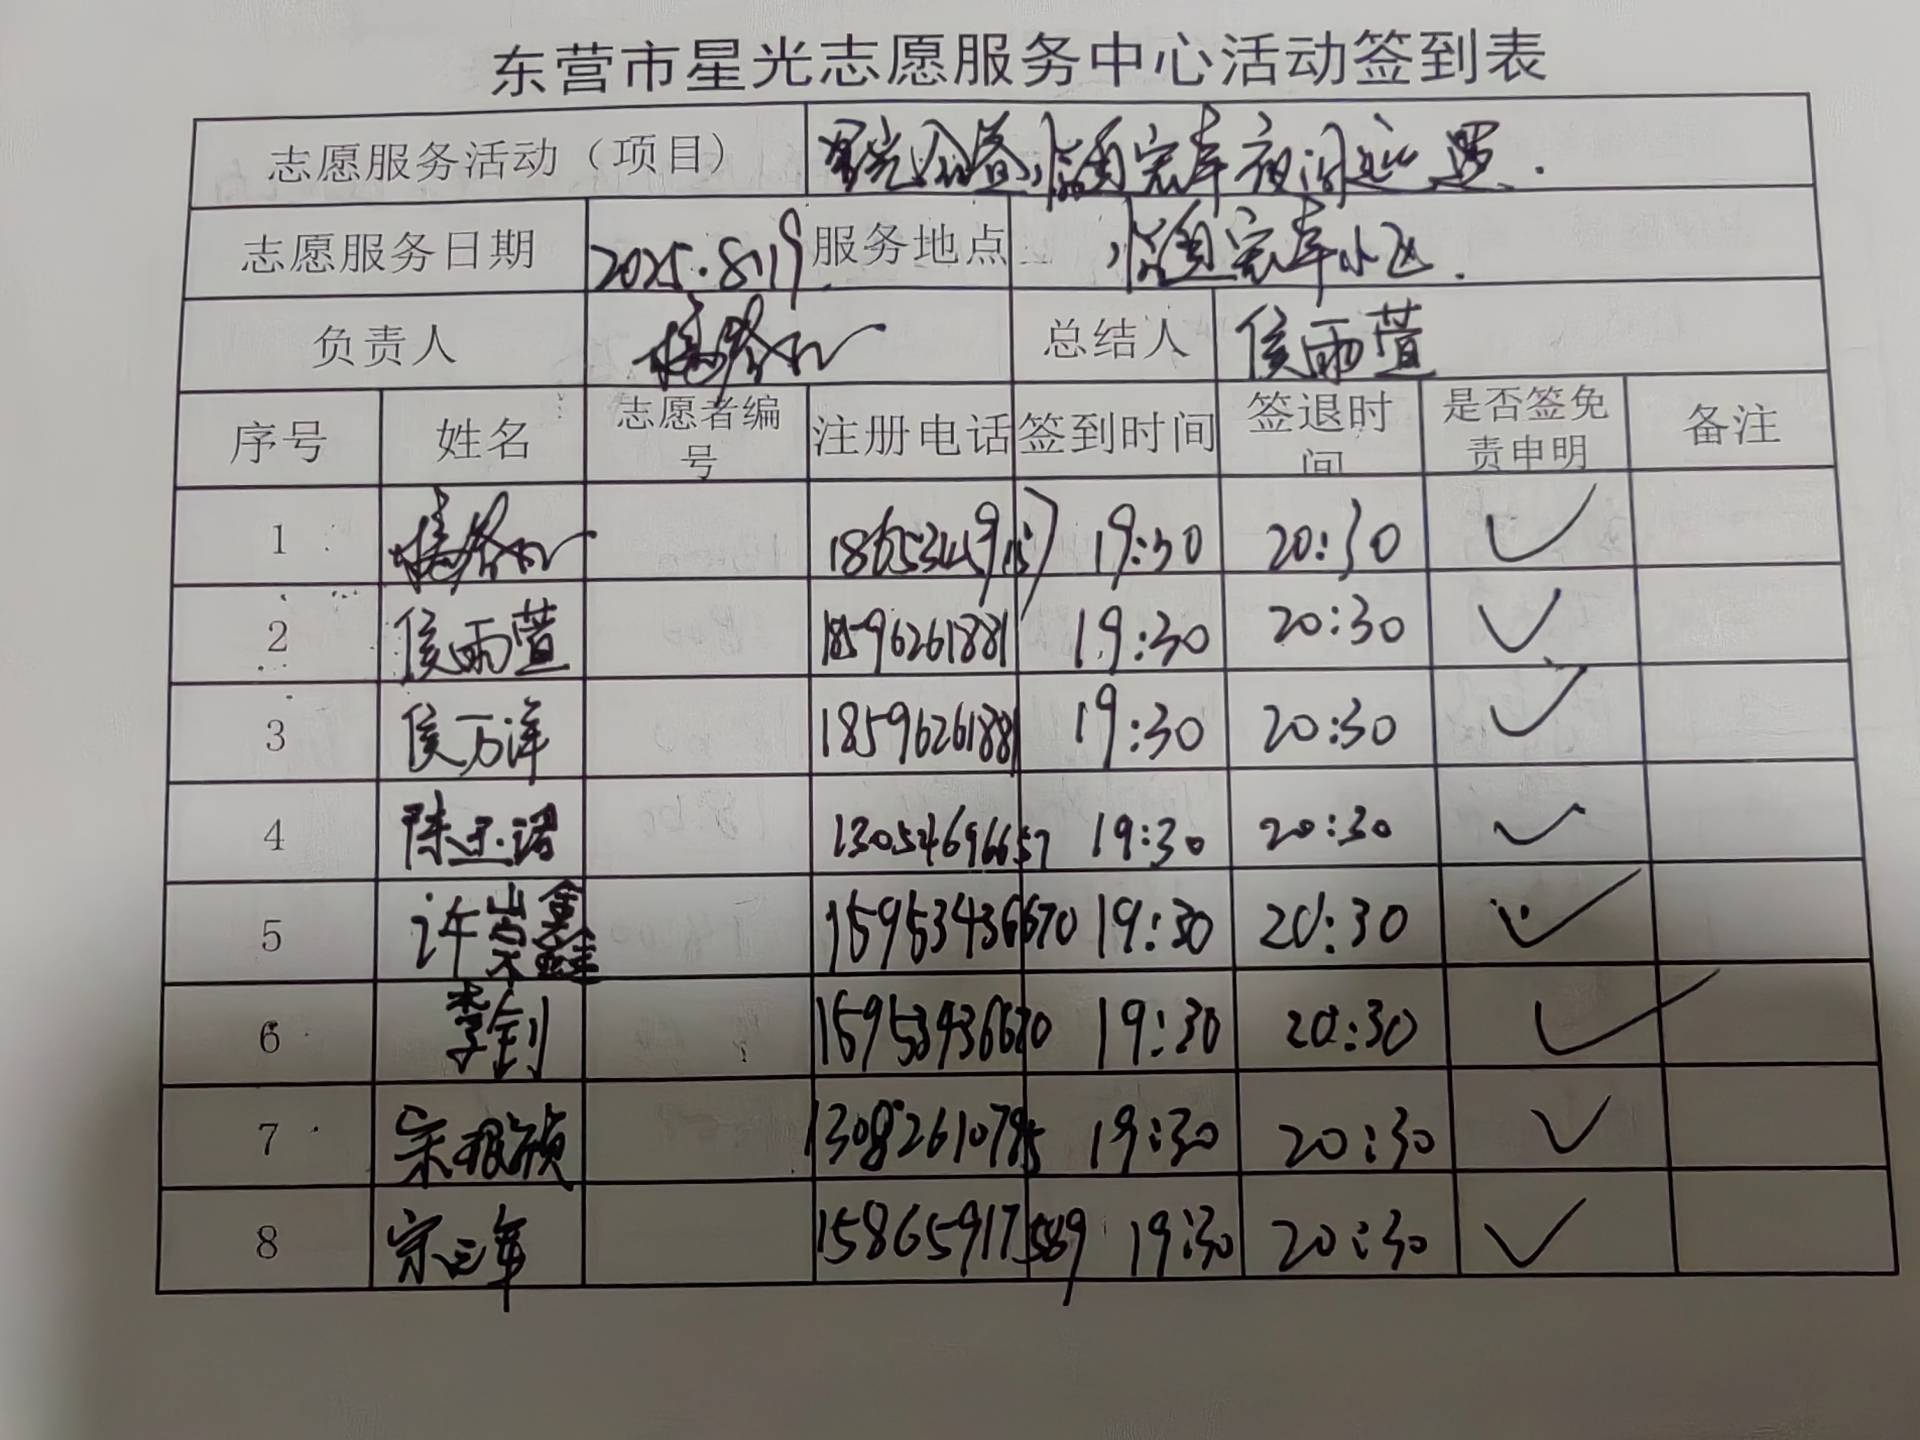 东营市星光志愿服务中心活动签到表
志愿服务活动（项目） 星光公益 夜间巡逻.
志愿服务日期 2025.8.19 服务地点 小区.
负责人 总结人 侯雨萱
序号 姓名 志愿者编号 注册电话 签到时间 签退时间 是否签免责申明 备注
1 19:30 20:30 ✓
2 侯雨萱 18596261881 19:30 20:30 ✓
3 侯万洋 18596261881 19:30 20:30 ✓
4 陈玉诺 13054696657 19:30 20:30 ✓
5 许崇鑫 15953436670 19:30 20:30 ✓
6 李钊 15953436670 19:30 20:30 ✓
7 13082610785 19:30 20:30 ✓
8 15865917589 19:30 20:30 ✓